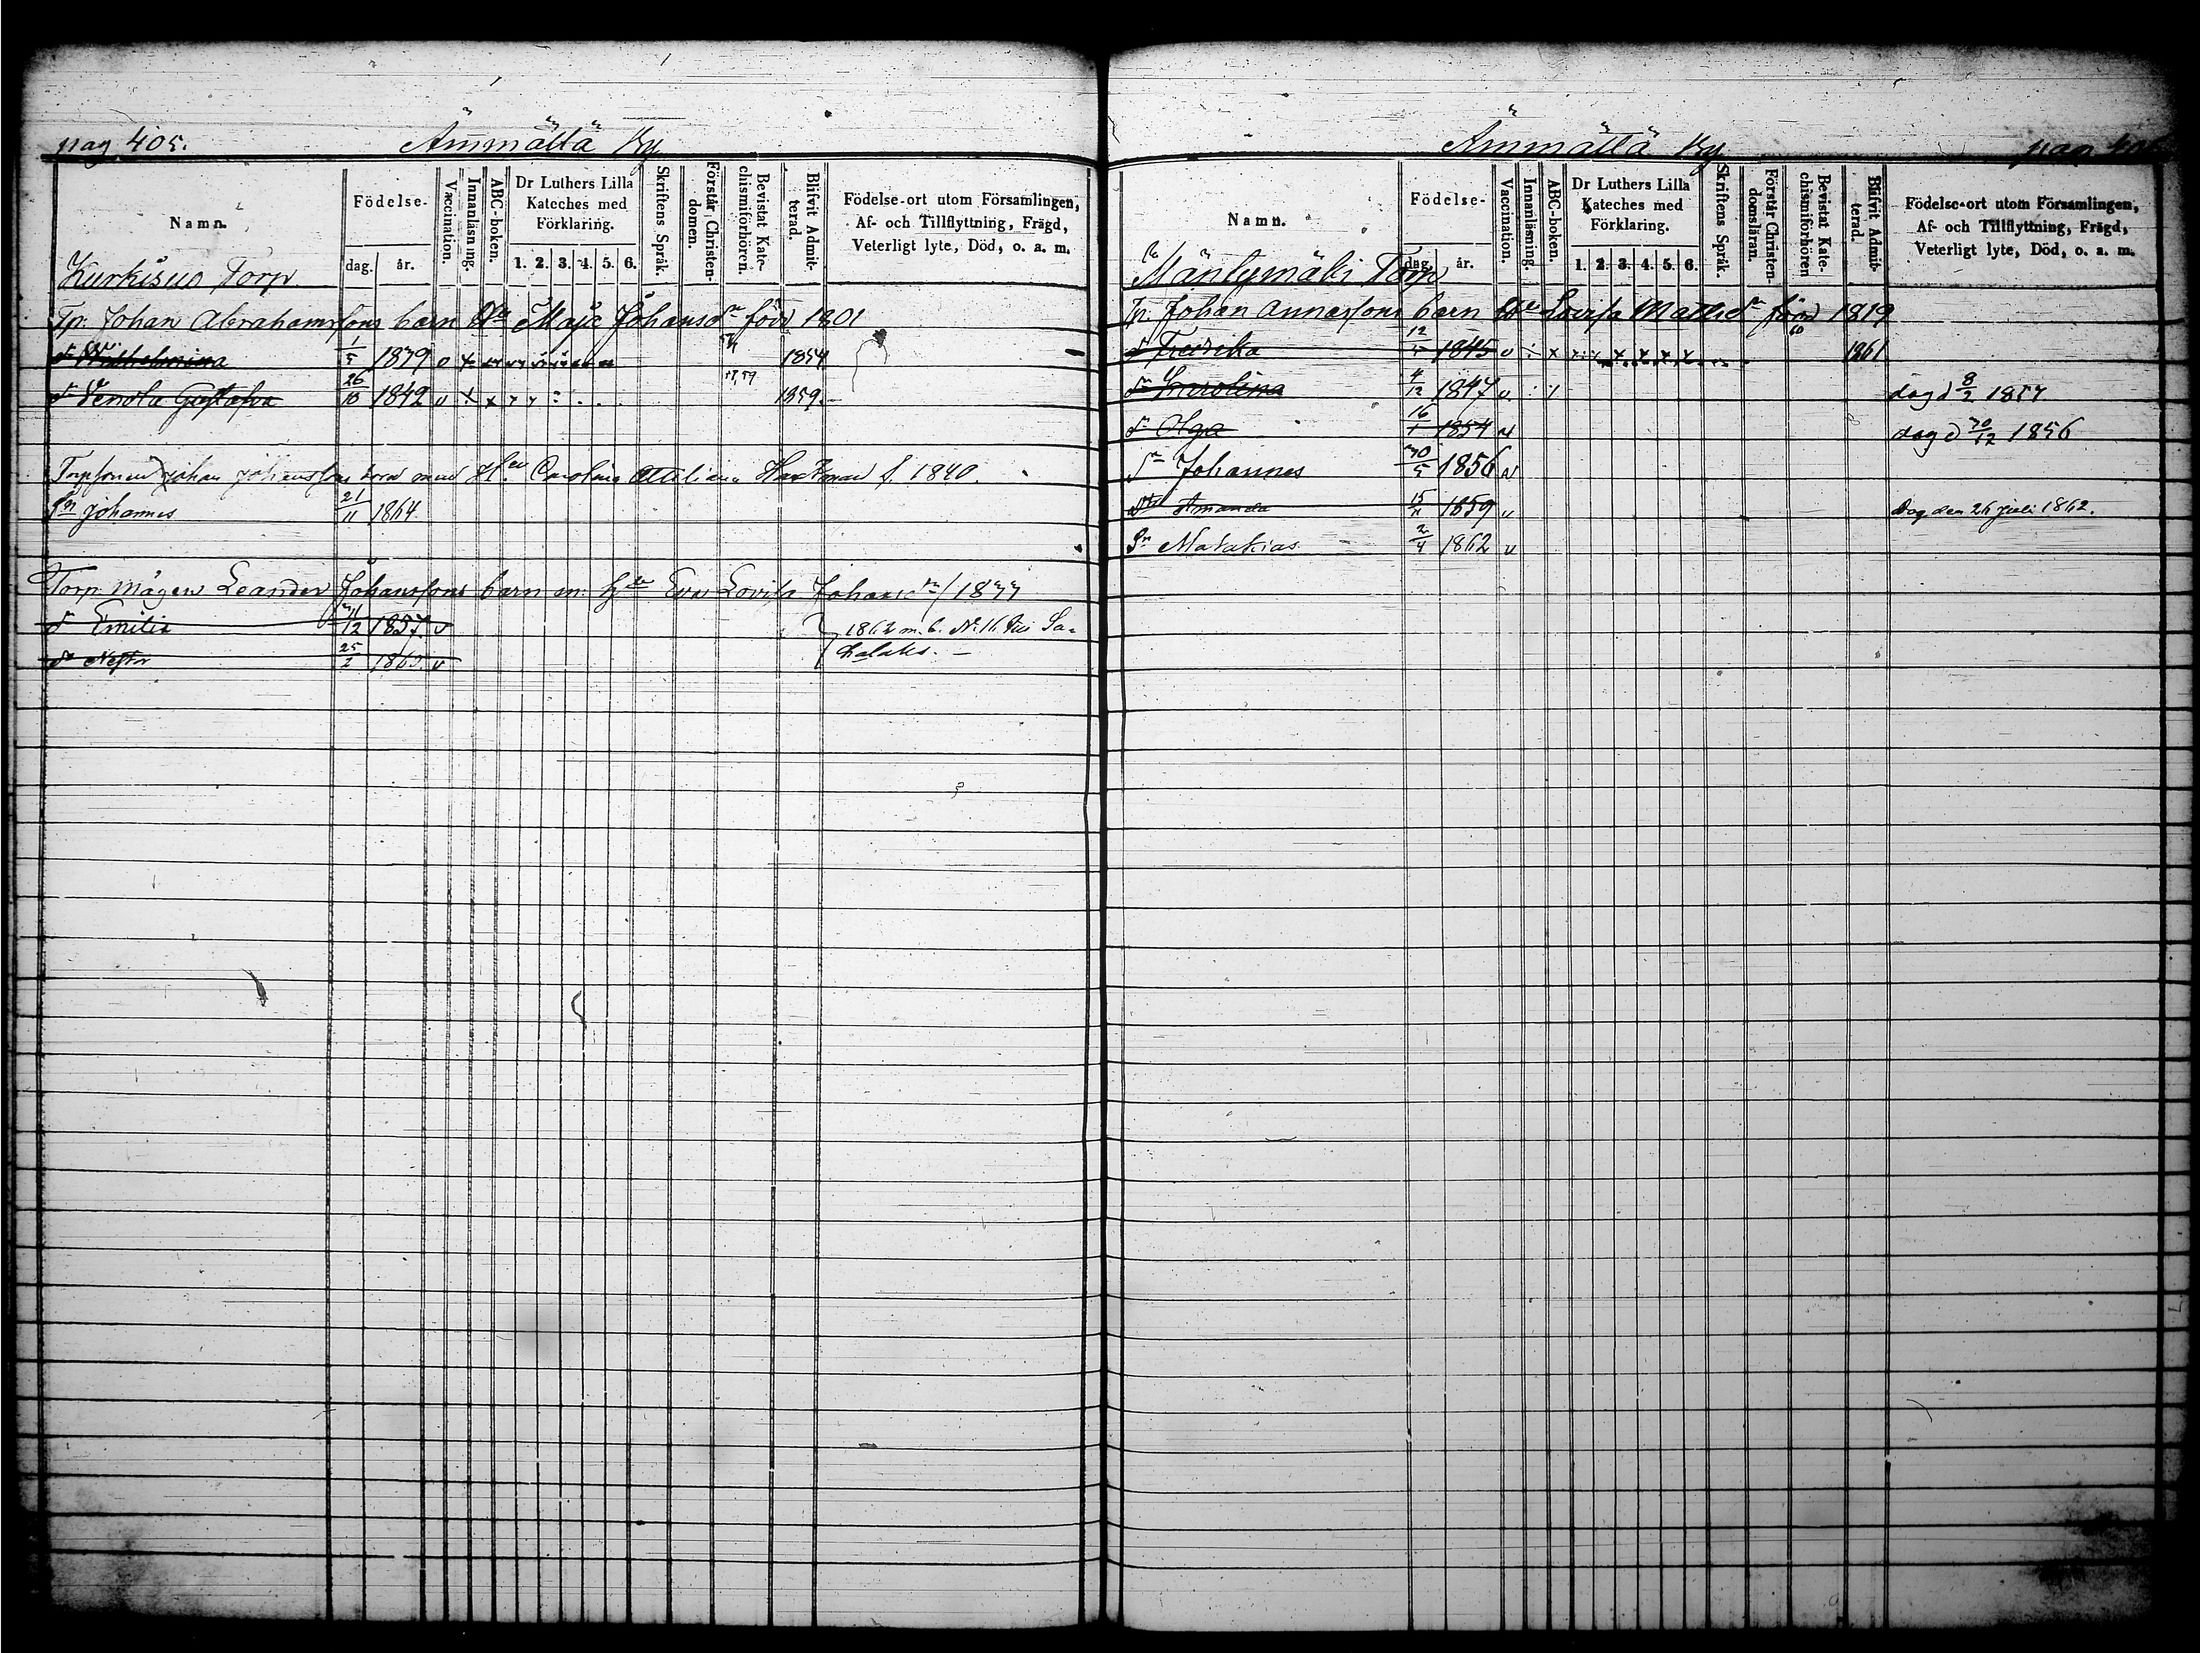 pag 405.
Ämmälä By
Namn.
Födelse-
dag.
år.
Vaccination.
Innanläsning.
ABC-boken.
Dr Luthers Lilla
Kateches med
Förklaring.
1. 2. 3. 4. 5. 6.
Skriftens Språk.
Förstår Christen-
domen.
Bevistat Kate-
chismiförhören.
Blifvit Admit-
terad.
Födelse-ort utom Församlingen,
Af- och Tillflyttning, Frägd,
Veterligt lyte, Död, o. a. m.
Kurkisuo Torp
Tp. Johan Abrahamssons barn Maja Johansdr född 1801
dr Wilhelmina 1/5 1839 v 1854
dr Gustafva 26/10 1842 v 1859.
Johan Johansson barn med Carolina f. 1840.
Sn Johannes 21/11 1864.
Torp mågen Leander Johanssons barn m: Eva Lovisa Johansdr
dr Emilia /12 1857. v 1862 m. b. No. 16 Sa-
Sn Nestor 25/2 v halaks.
Ämmälä By
pag 406
Namn.
Födelse-
dag.
år.
Vaccination.
Innanläsning.
ABC-boken.
Dr Luthers Lilla
Kateches med
Förklaring.
1. 2. 3. 4. 5. 6.
Skriftens Språk.
Förstår Christen-
domsläran.
Bevistat Kate-
chismiförhören
Blifvit Admit-
terad.
Födelse-ort utom Församlingen,
Af- och Tillflyttning, Frägd,
Veterligt lyte, Död, o. a. m.
Mäntymäki Torp
Tp. Johan Anderssons barn Lovisa Mattsdr född 1819
dr Fredrika 12/5 1845 v 60 1861
dr Carolina 4/12 1847 v. död d 8/2 1857
dr Olga 16/1 1854 död d 30/12 1856
Sn Johannes 30/5 1856
dr Amanda 15/11 1859 v Dog den 26 Juli 1862.
Sn Matathias 2/4 1862 v